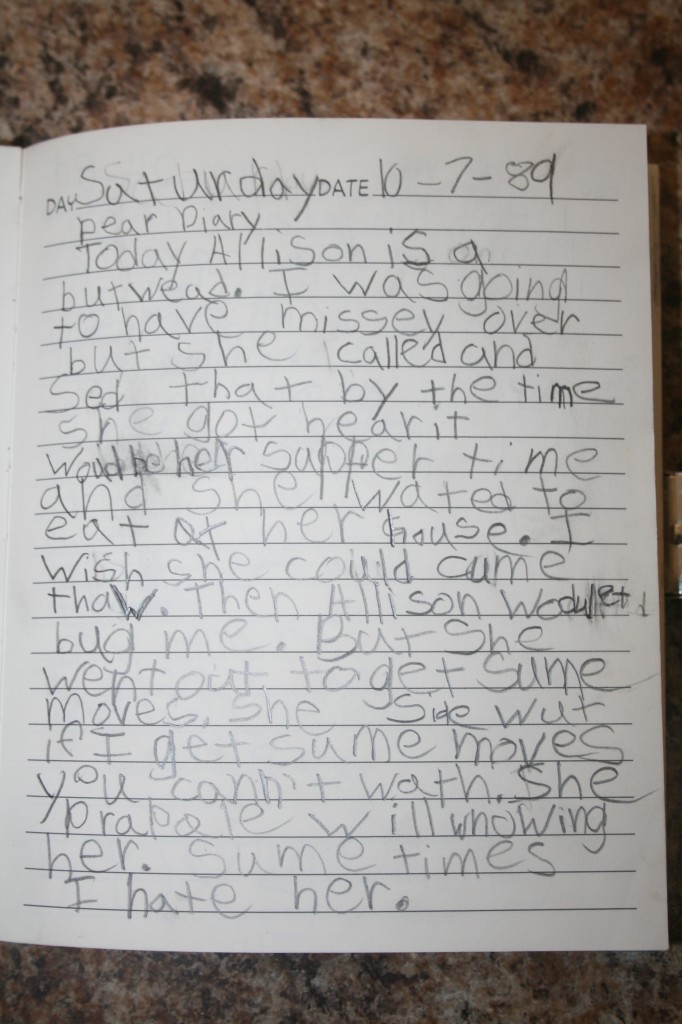 DAY Saturday DATE 10-7-89
Dear Diary
Today Allison is a
butwead. I was going
to have missey over
but she called and
Sed that by the time
she got hear it
woud be her supper time
and she wated to
eat at her house. I
wish she could cume
thaw. Then Allison
bug me. But she
went out to get sume
moves. she Side wut
if I get sume moves
you cann't wath. She
prabale will knowing
her. Sume times
I hate her.